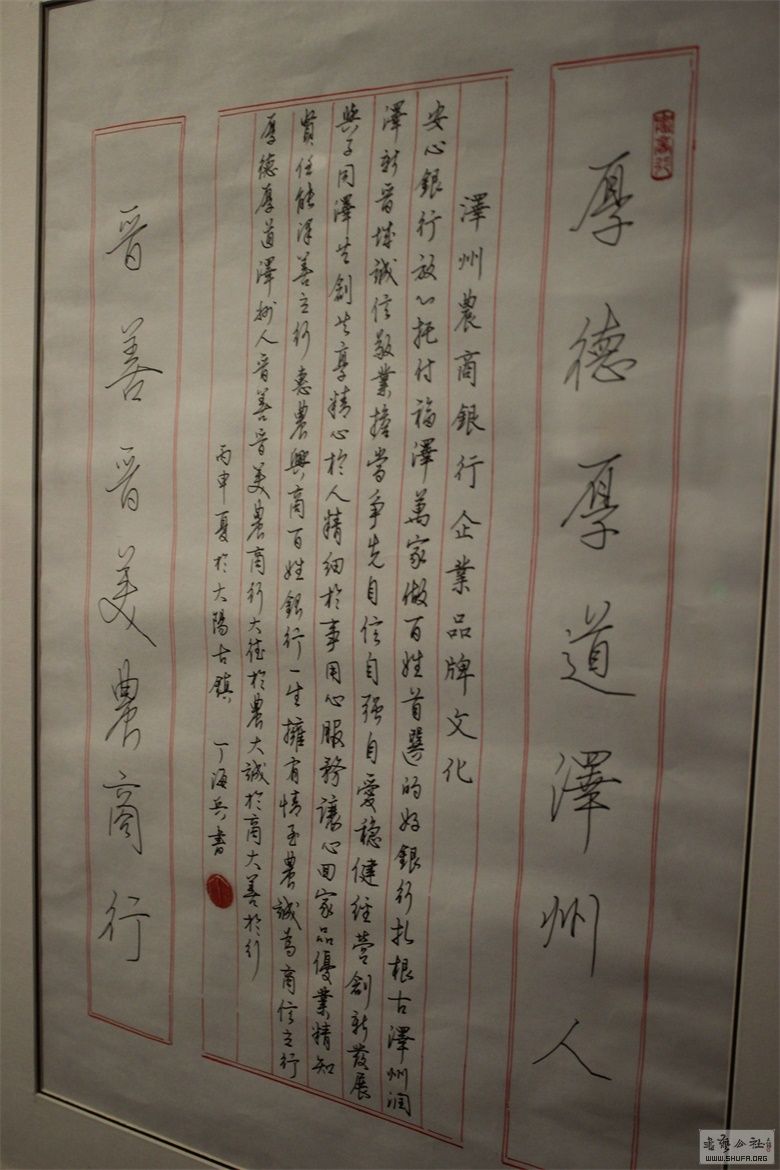 厚德厚道澤州人
澤州農商銀行企業品牌文化
安心銀行放心托付福澤萬家做百姓首選的好銀行扎根古澤州潤
澤新晋城誠信敬業擔當爭先自信自强自愛穩健经營創新發展
與子同澤共創共享精心於人精细於事用心服務讓心回家品優業精知
賢任能澤善立行惠農興商百姓銀行一生擁有情至農誠為商信立行
厚德厚道澤州人晋善晋美農商行大德於農大誠於商大善於行
丙申夏於大陽古鎮 丁海兵書
晋善晋美農商行
書藝公社
WWW.SHUFA.ORG